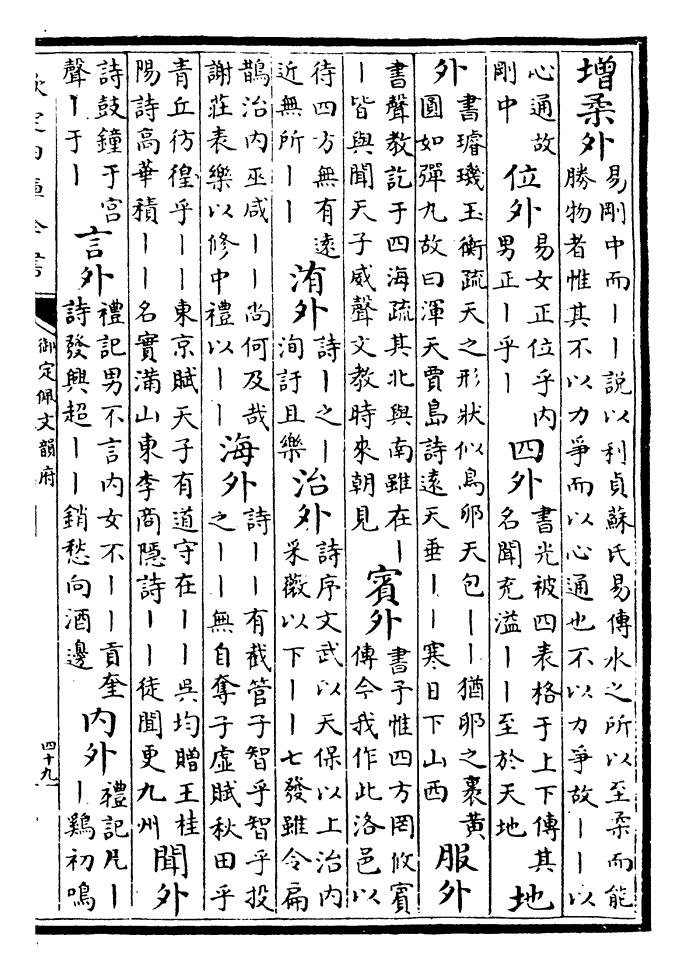 增柔外
易剛中而丨丨說以利貞蘇氏易傳水之所以至柔而能
勝物者惟其不以力爭而以心通也不以力爭故丨丨以
心通故
剛中
位外
易女正位乎内
男正丨乎丨
四外
書光被四表格于上下傳其
名聞充溢丨丨至於天地
地
外
書璿璣玉衡疏天之形狀似鳥卵天包丨丨猶卵之裹黄
圓如彈丸故曰渾天賈島詩遠天垂丨丨寒日下山西
服外
書聲教訖于四海疏其北與南雖在丨
丨皆與聞天子威聲文教時來朝見
賓外
書予惟四方罔攸賓
傳今我作此洛邑以
待四方無有遠
近無所丨丨
洧外
詩丨之丨
洵訏且樂
治外
詩序文武以天保以上治内
采薇以下丨丨七發雖令扁
鵲治内巫咸丨丨尚何及哉
謝莊表樂以修中禮以丨丨
海外
詩丨丨有截管子智乎智乎投
之丨丨無自奪子虛賦秋田乎
青丘彷徨乎丨丨東京賦天子有道守在丨丨吳均贈王桂
陽詩高華積丨丨名實滿山東李商隱詩丨丨徒聞更九州
聞外
詩鼓鐘于宫
聲丨于丨
言外
禮記男不言内女不丨丨貢奎
詩發興超丨丨銷愁向酒邊
内外
禮記凡丨
丨鷄初鳴
欽定四庫全書
御定佩文韻府
四十九